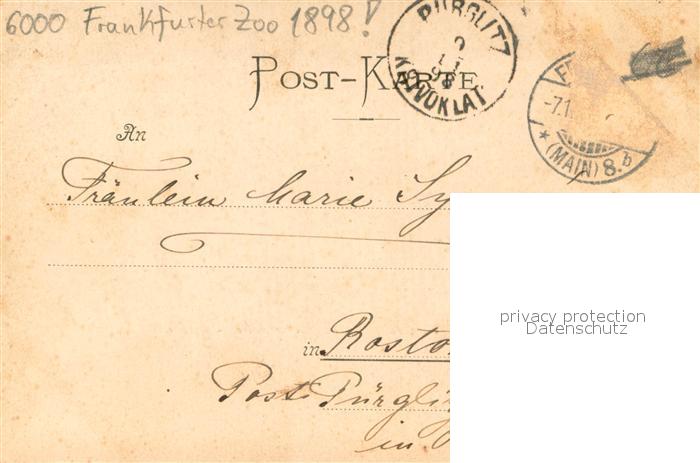 6000 Frankfurter Zoo 1898!
PÜRGLITZ
KŘIVOKLAT
POST-KARTE
-7.1
(MAIN) 8.b
An
Fräulein Marie Sy
in Rosto
Post Pürgli
in
privacy protection
Datenschutz